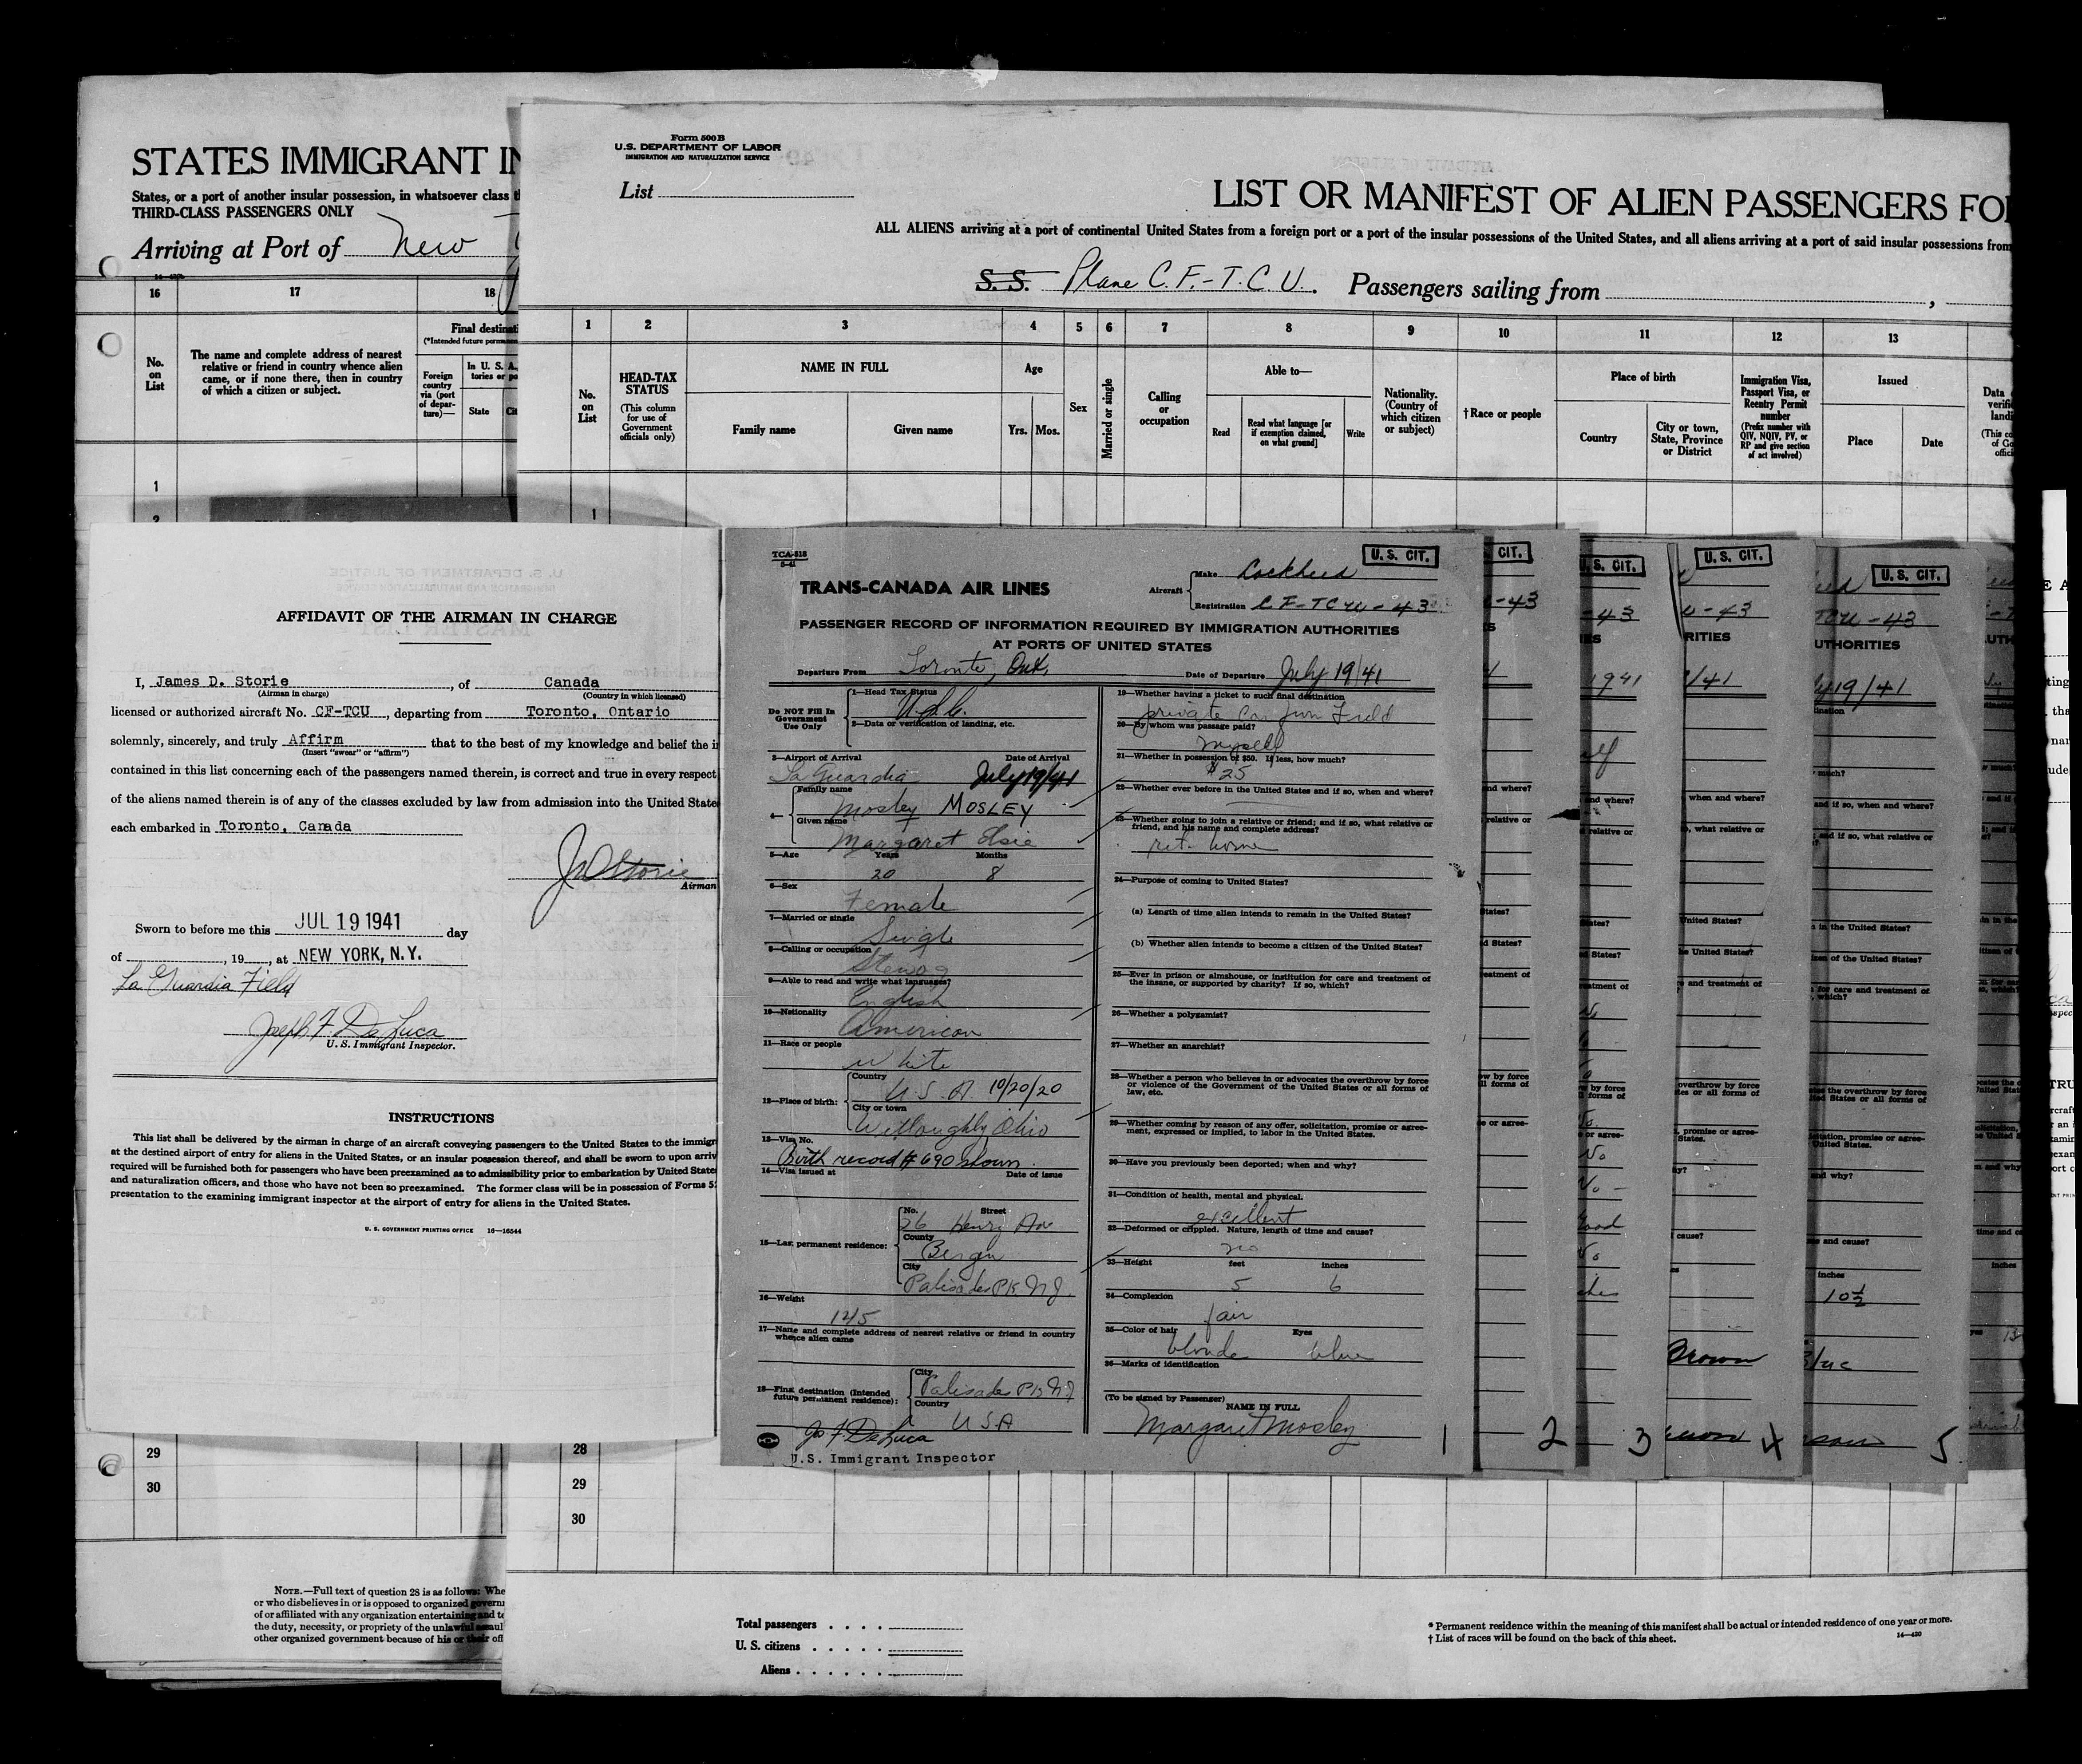 STATES IMMIGRANT IN
States, or a port of another insular possession, in whatsoever class
THIRD-CLASS PASSENGERS ONLY
Arriving at Port of New
16 17 18
No. on List
The name and complete address of nearest
relative or friend in country whence alien
came, or if none there, then in country
of which a citizen or subject.
Final destinati
(*Intended future perman
Foreign
country
via (port
of depar-
ture)—
In U. S. A.,
tories or po
State
1
2
29
30
NOTE.—Full text of question 28 is as follows: Whe
or who disbelieves in or is opposed to organized govern
of or affiliated with any organization entertaining and te
the duty, necessity, or propriety of the unlawful assaul
other organized government because of his or their off
Form 500 B
U.S. DEPARTMENT OF LABOR
IMMIGRATION AND NATURALIZATION SERVICE
List
LIST OR MANIFEST OF ALIEN PASSENGERS FOR
ALL ALIENS arriving at a port of continental United States from a foreign port or a port of the insular possessions of the United States, and all aliens arriving at a port of said insular possessions from
S.S. Plane C.F.-T.C.U. Passengers sailing from ,
1 2 3 4 5 6 7 8 9 10 11 12 13
No. on List
HEAD-TAX STATUS
(This column for use of Government officials only)
NAME IN FULL
Family name Given name
Age
Yrs. Mos.
Sex
Married or single
Calling or occupation
Able to—
Read
Read what language [or if exemption claimed, on what ground]
Write
Nationality. (Country of which citizen or subject)
†Race or people
Place of birth
Country
City or town, State, Province or District
Immigration Visa, Passport Visa, or Reentry Permit number
(Prefix number with QIV, NQIV, PV, or RP and give section of act involved)
Issued
Place Date
1
28
29
30
Total passengers . . . .
U. S. citizens . . . . .
Aliens . . . . . .
* Permanent residence within the meaning of this manifest shall be actual or intended residence of one year or more.
† List of races will be found on the back of this sheet.
14—420
AFFIDAVIT OF THE AIRMAN IN CHARGE
I, James D. Storie, of Canada
(Airman in charge) (Country in which licensed)
licensed or authorized aircraft No. CF-TCU, departing from Toronto, Ontario
solemnly, sincerely, and truly Affirm that to the best of my knowledge and belief the i
(Insert "swear" or "affirm")
contained in this list concerning each of the passengers named therein, is correct and true in every respect
of the aliens named therein is of any of the classes excluded by law from admission into the United State
each embarked in Toronto, Canada
JDStorie
Airman
Sworn to before me this JUL 19 1941 day
of , 19 , at NEW YORK, N.Y.
La Guardia Field
Joseph F. DeLuca
U. S. Immigrant Inspector.
INSTRUCTIONS
This list shall be delivered by the airman in charge of an aircraft conveying passengers to the United States to the immigr
at the destined airport of entry for aliens in the United States, or an insular possession thereof, and shall be sworn to upon arriv
required will be furnished both for passengers who have been preexamined as to admissibility prior to embarkation by United State
and naturalization officers, and those who have not been so preexamined. The former class will be in possession of Forms 5
presentation to the examining immigrant inspector at the airport of entry for aliens in the United States.
U. S. GOVERNMENT PRINTING OFFICE 16—16544
TCA-518
5-41
U.S. CIT.
TRANS-CANADA AIR LINES
Aircraft
Make Lockheed
Registration C F-TCU-43
PASSENGER RECORD OF INFORMATION REQUIRED BY IMMIGRATION AUTHORITIES
AT PORTS OF UNITED STATES
Departure From Toronto, Ont. Date of Departure July 19/41
Do NOT Fill In
Government
Use Only
1—Head Tax Status
2—Data or verification of landing, etc.
3—Airport of Arrival Date of Arrival
La Guardia July 19/41
4—
Family name
Mosley MOSLEY
Given name
Margaret Elsie
5—Age Years Months
20 8
6—Sex
Female
7—Married or single
Single
8—Calling or occupation
9—Able to read and write what languages?
English
10—Nationality
American
11—Race or people
White
12—Place of birth:
Country
U.S.A 10/20/20
City or town
Willoughby Ohio
13—Visa No.
Birth record # 690 shown
14—Visa issued at Date of issue
15—Last permanent residence:
No. Street
26 Henry Ave
County
Bergen
City
Palisades Pk NJ.
16—Weight
145
17—Name and complete address of nearest relative or friend in country
whence alien came
18—Final destination (Intended
future permanent residence):
City
Palisades Pk NJ
Country
USA
Jos F. DeLuca
U.S. Immigrant Inspector
19—Whether having a ticket to such final destination
private
20—By whom was passage paid?
myself
21—Whether in possession of $50. If less, how much?
$25
22—Whether ever before in the United States and if so, when and where?
23—Whether going to join a relative or friend; and if so, what relative or
friend, and his name and complete address?
ret. home
24—Purpose of coming to United States?
(a) Length of time alien intends to remain in the United States?
(b) Whether alien intends to become a citizen of the United States?
25—Ever in prison or almshouse, or institution for care and treatment of
the insane, or supported by charity? If so, which?
26—Whether a polygamist?
27—Whether an anarchist?
28—Whether a person who believes in or advocates the overthrow by force
or violence of the Government of the United States or all forms of
law, etc.
29—Whether coming by reason of any offer, solicitation, promise or agree-
ment, expressed or implied, to labor in the United States.
30—Have you previously been deported; when and why?
31—Condition of health, mental and physical.
excellent
32—Deformed or crippled. Nature, length of time and cause?
no
33—Height feet inches
5 6
34—Complexion
fair
35—Color of hair Eyes
blonde blue
36—Marks of identification
(To be signed by Passenger)
NAME IN FULL
Margaret Mosley
1
CIT.
-43
2
U.S. CIT.
-43
1941
No
Good
No
3
U.S. CIT.
-43
RITIES
/41
Brown
4
U.S. CIT.
TCU-43
UTHORITIES
19/41
inches
10½
Blue
5